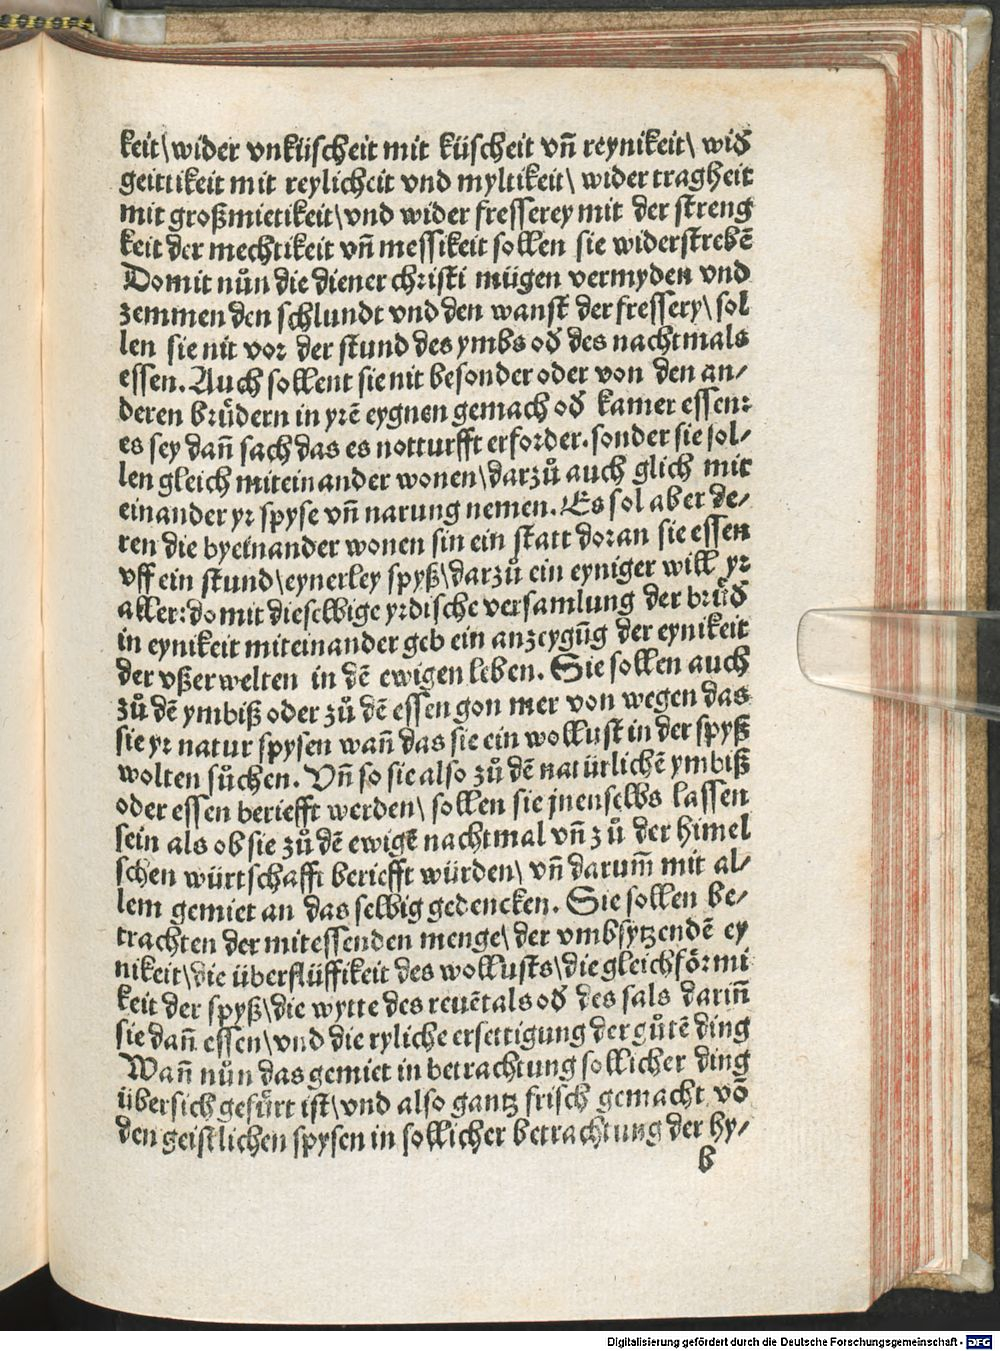 keit\wider vnküscheit mit küscheit vñ reynikeit\ wiđ
geittikeit mit reylicheit vnd myltikeit\ wider tragheit
mit großmietikeit\vnd wider fresserey mit der streng
keit der mechtikeit vñ messikeit sollen sie widerstrebē
Domit nůn die diener christi mügen vermyden vnd
zemmen den schlundt vnd den wanst der fressery\sol
len sie nit vor der stund des ymbs ođ des nachtmals
essen. Auch sollent sie nit besonder oder von den an/
deren brůdern in yrē eygnen gemach ođ kamer essen:
es sey dañ sach das es notturfft erforder. sonder sie sol/
len gleich miteinander wonen\darzů auch glich mit
einander yr spyse vñ narung nemen. Es sol aber de/
ren die byeinander wonen sin ein statt doran sie essen
vff ein stund\eynerley spyß\darzů ein eyniger will yr
aller: domit dieselbige yrdische versamlung der brůđ
in eynikeit miteinander geb ein anzeygūg der eynikeit
der vßerwelten in dē ewigen leben. Sie sollen auch
zů dē ymbiß oder zů dē essen gon mer von wegen das
sie yr natur spysen wañ das sie ein wollust in der spyß
wolten sůchen. Vñ so sie also zů dē natürlichē ymbiß
oder essen beriefft werden\ sollen sie jnenselbs lassen
sein als ob sie zů dē ewigē nachtmal vñ zů der himel
schen würtschafft beriefft würden\ vñ darum̄ mit al/
lem gemiet an das selbig gedencken. Sie sollen be/
trachten der mitessenden menge\der vmbsytzendē ey
nikeit\die überflüssikeit des wollusts\die gleichförmi
keit der spyß\die wytte des reuētals ođ des sals dariñ
sie dañ essen\vnd die ryliche ersettigung der gůtē ding
Wañ nůn das gemiet in betrachtung sollicher ding
übersich gefürt ist\vnd also gantz frisch gemacht vō
den geistlichen spysen in sollicher betrachtung der hy/
b
Digitalisierung gefördert durch die Deutsche Forschungsgemeinschaft - DFG